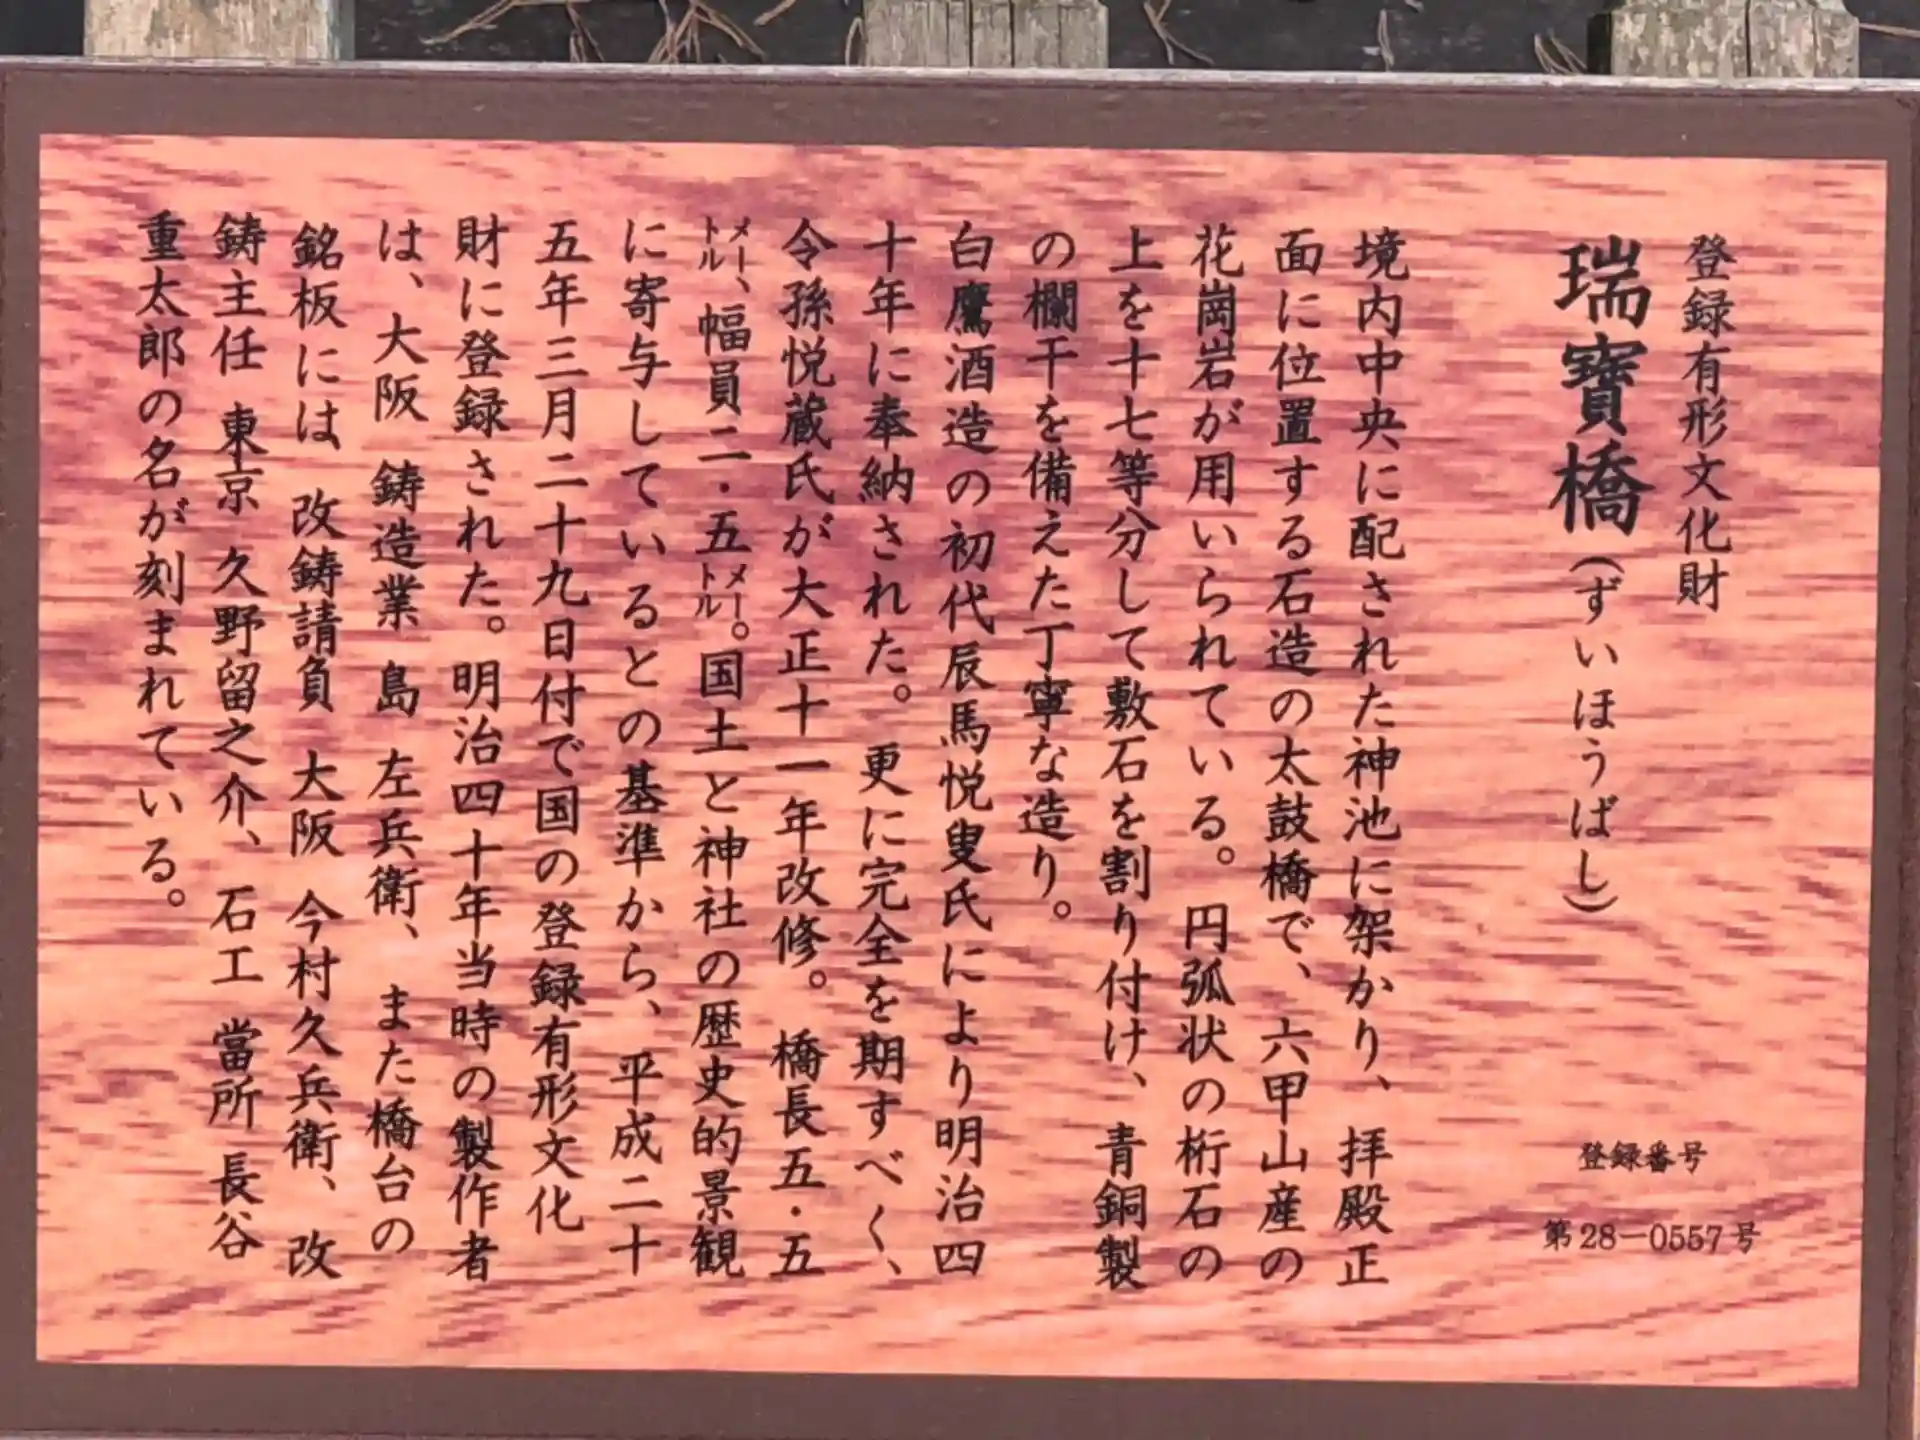 登録有形文化財
瑞寳橋(ずいほうばし)
登録番号
第28－0557号
境内中央に配された神池に架かり、拝殿正
面に位置する石造の太鼓橋で、六甲山産の
花崗岩が用いられている。円弧状の桁石の
上を十七等分して敷石を割り付け、青銅製
の欄干を備えた丁寧な造り。
白鷹酒造の初代辰馬悦叟氏により明治四
十年に奉納された。更に完全を期すべく、
令孫悦蔵氏が大正十一年改修。橋長五・五
メートル、幅員二・五メートル。国土と神社の歴史的景観
に寄与しているとの基準から、平成二十
五年三月二十九日付で国の登録有形文化
財に登録された。明治四十年当時の製作者
は、大阪 鋳造業 島 左兵衛、また橋台の
銘板には 改鋳請負 大阪 今村久兵衛、改
鋳主任 東京 久野留之介、石工 當所 長谷
重太郎の名が刻まれている。